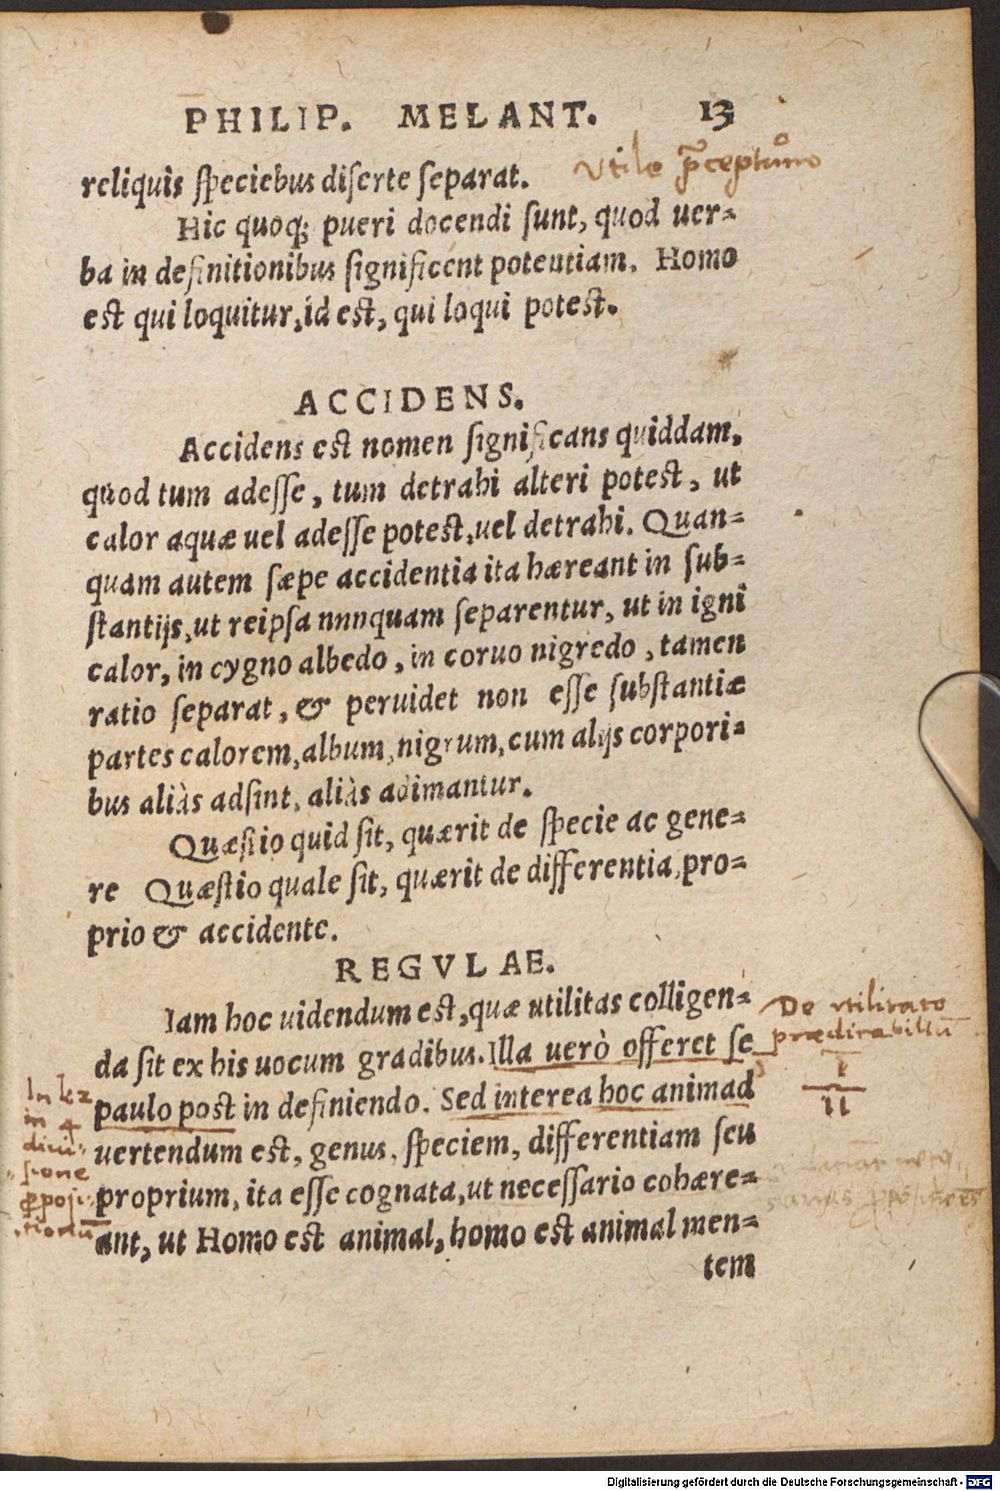 PHILIP. MELANT. 13
reliquis speciebus diserte separat.
Utile
Hic quoq; pueri docendi sunt, quod uer-
ba in definitionibus significent potentiam. Homo
est qui loquitur, id est, qui loqui potest.
ACCIDENS.
Accidens est nomen significans quiddam,
quod tum adesse, tum detrahi alteri potest, ut
calor aquæ uel adesse potest, uel detrahi. Quan-
quam autem sæpe accidentia ita hæreant in sub-
stantijs, ut reipsa nnnquam separentur, ut in igni
calor, in cygno albedo, in coruo nigredo, tamen
ratio separat, & peruidet non esse substantiæ
partes calorem, album, nigrum, cum alijs corpori-
bus aliàs adsint, aliàs adimantur.
Quæstio quid sit, quærit de specie ac gene-
re Quæstio quale sit, quærit de differentia, pro-
prio & accidente.
REGVLAE.
Iam hoc uidendum est, quæ utilitas colligen-
da sit ex his uocum gradibus. Illa uerò offeret se
paulo post in definiendo. Sed interea hoc animad
uertendum est, genus, speciem, differentiam seu
proprium, ita esse cognata, ut necessario cohære-
ant, ut Homo est animal, homo est animal men-
tem
De utilitate
prædicabiliū
Digitalisierung gefördert durch die Deutsche Forschungsgemeinschaft - DFG